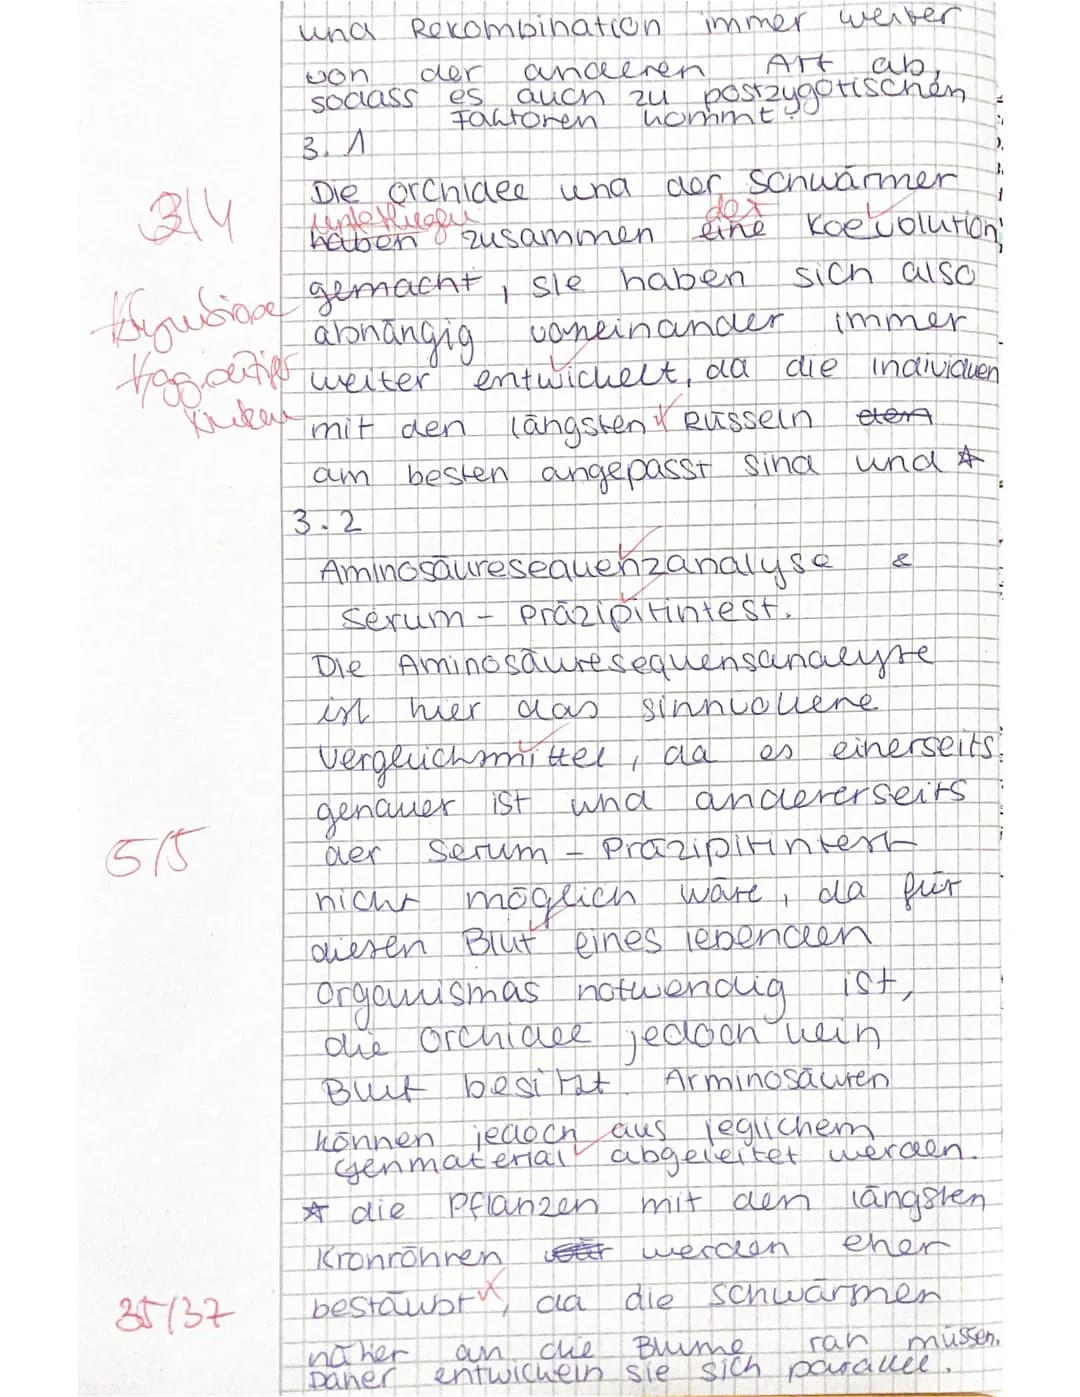 und Rekombination immer weiter
von der anderen Art ab,
sodass es auch zu postzygotischen
Faktoren kommt.
3.1
Die Orchidee und der Schwärmer
3/4
unterliegen der
haben zusammen eine Koevolution
gemacht, sie haben sich also
Symbiose
abhängig voneinander immer
weiter entwickelt, da die Individuen
mit den längsten Rüsseln
am besten angepasst sind und *
3.2
Aminosäuresequenzanalyse &
Serum-Präzipitintest.
Die Aminosäuresequensanalyse
ist hier das sinnvollene
Vergleichsmittel, da es einerseits
genauer ist und andererseits
5/5
der Serum-Präzipitintest
nicht möglich wäre, da für
diesen Blut eines lebenden
Organismas notwendig ist,
die Orchidee jedoch kein
Blut besitzt. Arminosäuren
können jedoch aus jeglichem
Genmaterial abgeleitet werden.
* die Pflanzen mit den längsten
Kronröhren werden eher
35/37
bestäubt, da die Schwärmer
näher an die Blume ran müssen.
Daher entwickeln sie sich parallel.